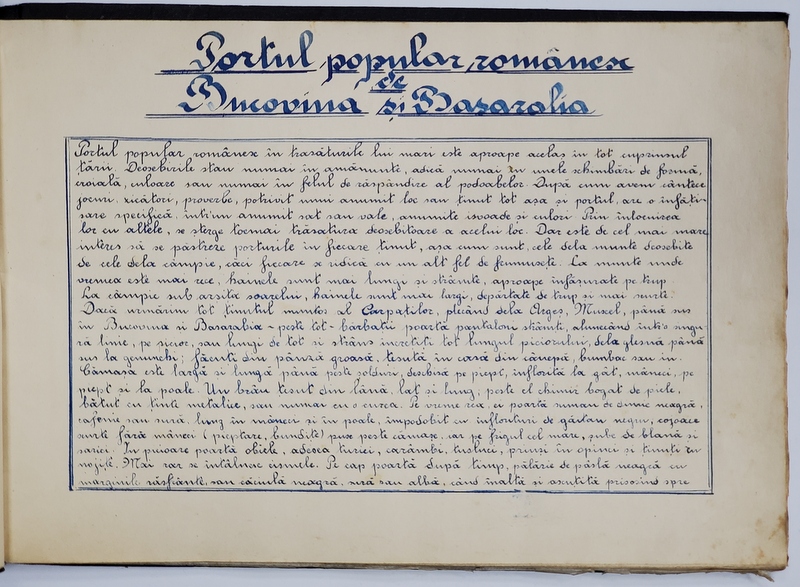 Portul popular românesc
de
Bucovina și Basarabia
Portul popular românesc în trăsăturile lui mari este aproape acelaș în tot cuprinsul
țării. Deosebirile stau numai în amănunte, adică numai în unele schimbări de formă,
croială, culoare sau numai în felul de răspândire al podoabelor. După cum avem cântece
jocuri, zicători, proverbe, potrivit unui anumit loc sau ținut tot așa și portul, are o înfăți-
șare specifică, într'un anumit sat sau vale, anumite isvoade și culori. Prin înlocuirea
lor cu altele, se șterge tocmai trăsătura deosebitoare a acelui loc. Dar este de cel mai mare
interes să se păstreze porturile în fiecare ținut, așa cum sunt, cele dela munte deosebite
de cele dela câmpie, căci fiecare se ridică cu un alt fel de frumusețe. La munte unde
vremea este mai rece, hainele sunt mai lungi și strâmte, aproape înfășurate pe trup.
La câmpie sub arșița soarelui, hainele sunt mai largi, depărtate de trup și mai scurte.
Dacă urmărim tot ținutul muntos al Carpaților, plecând dela Argeș, Muscel, până sus
în Bucovina și Basarabia - peste tot - bărbații poartă pantaloni strâmți, alunecând într'o singu-
ră linie, pe picior, sau lungi de tot și strâns încrețiți tot lungul piciorului, dela gleznă până
sus la genunchi; făcuți din pânză groasă, țesută în casă din cânepă, bumbac sau in.
Cămașa este largă și lungă până peste șolduri, deschisă pe piept, înflorită la gât, mâneci, pe
piept și la poale. Un brâu țesut din lână, lat și lung; peste el chimir bogat de piele,
bătut cu ținte metalice, sau numai cu o curea. Pe vreme rea, ei poartă suman de dimie neagră,
cafenie sau sură, lung în mâneci și în poale, împodobit cu înflorituri de găitan negru; cojoace
scurte fără mâneci (pieptare, bundițe) puse peste cămașe, iar pe frigul cel mare, șube de blană și
sarici. În picioare poartă obiele, adesea turici, carâmbi, tuslici, prinși în opinci și ținuți cu
nojițe. Mai rar se întâlnesc cismele. Pe cap poartă după timp, pălărie de pâslă neagră cu
marginile răsfrânte, sau căciulă neagră, sură sau albă, când înaltă și ascuțită prisosind spre